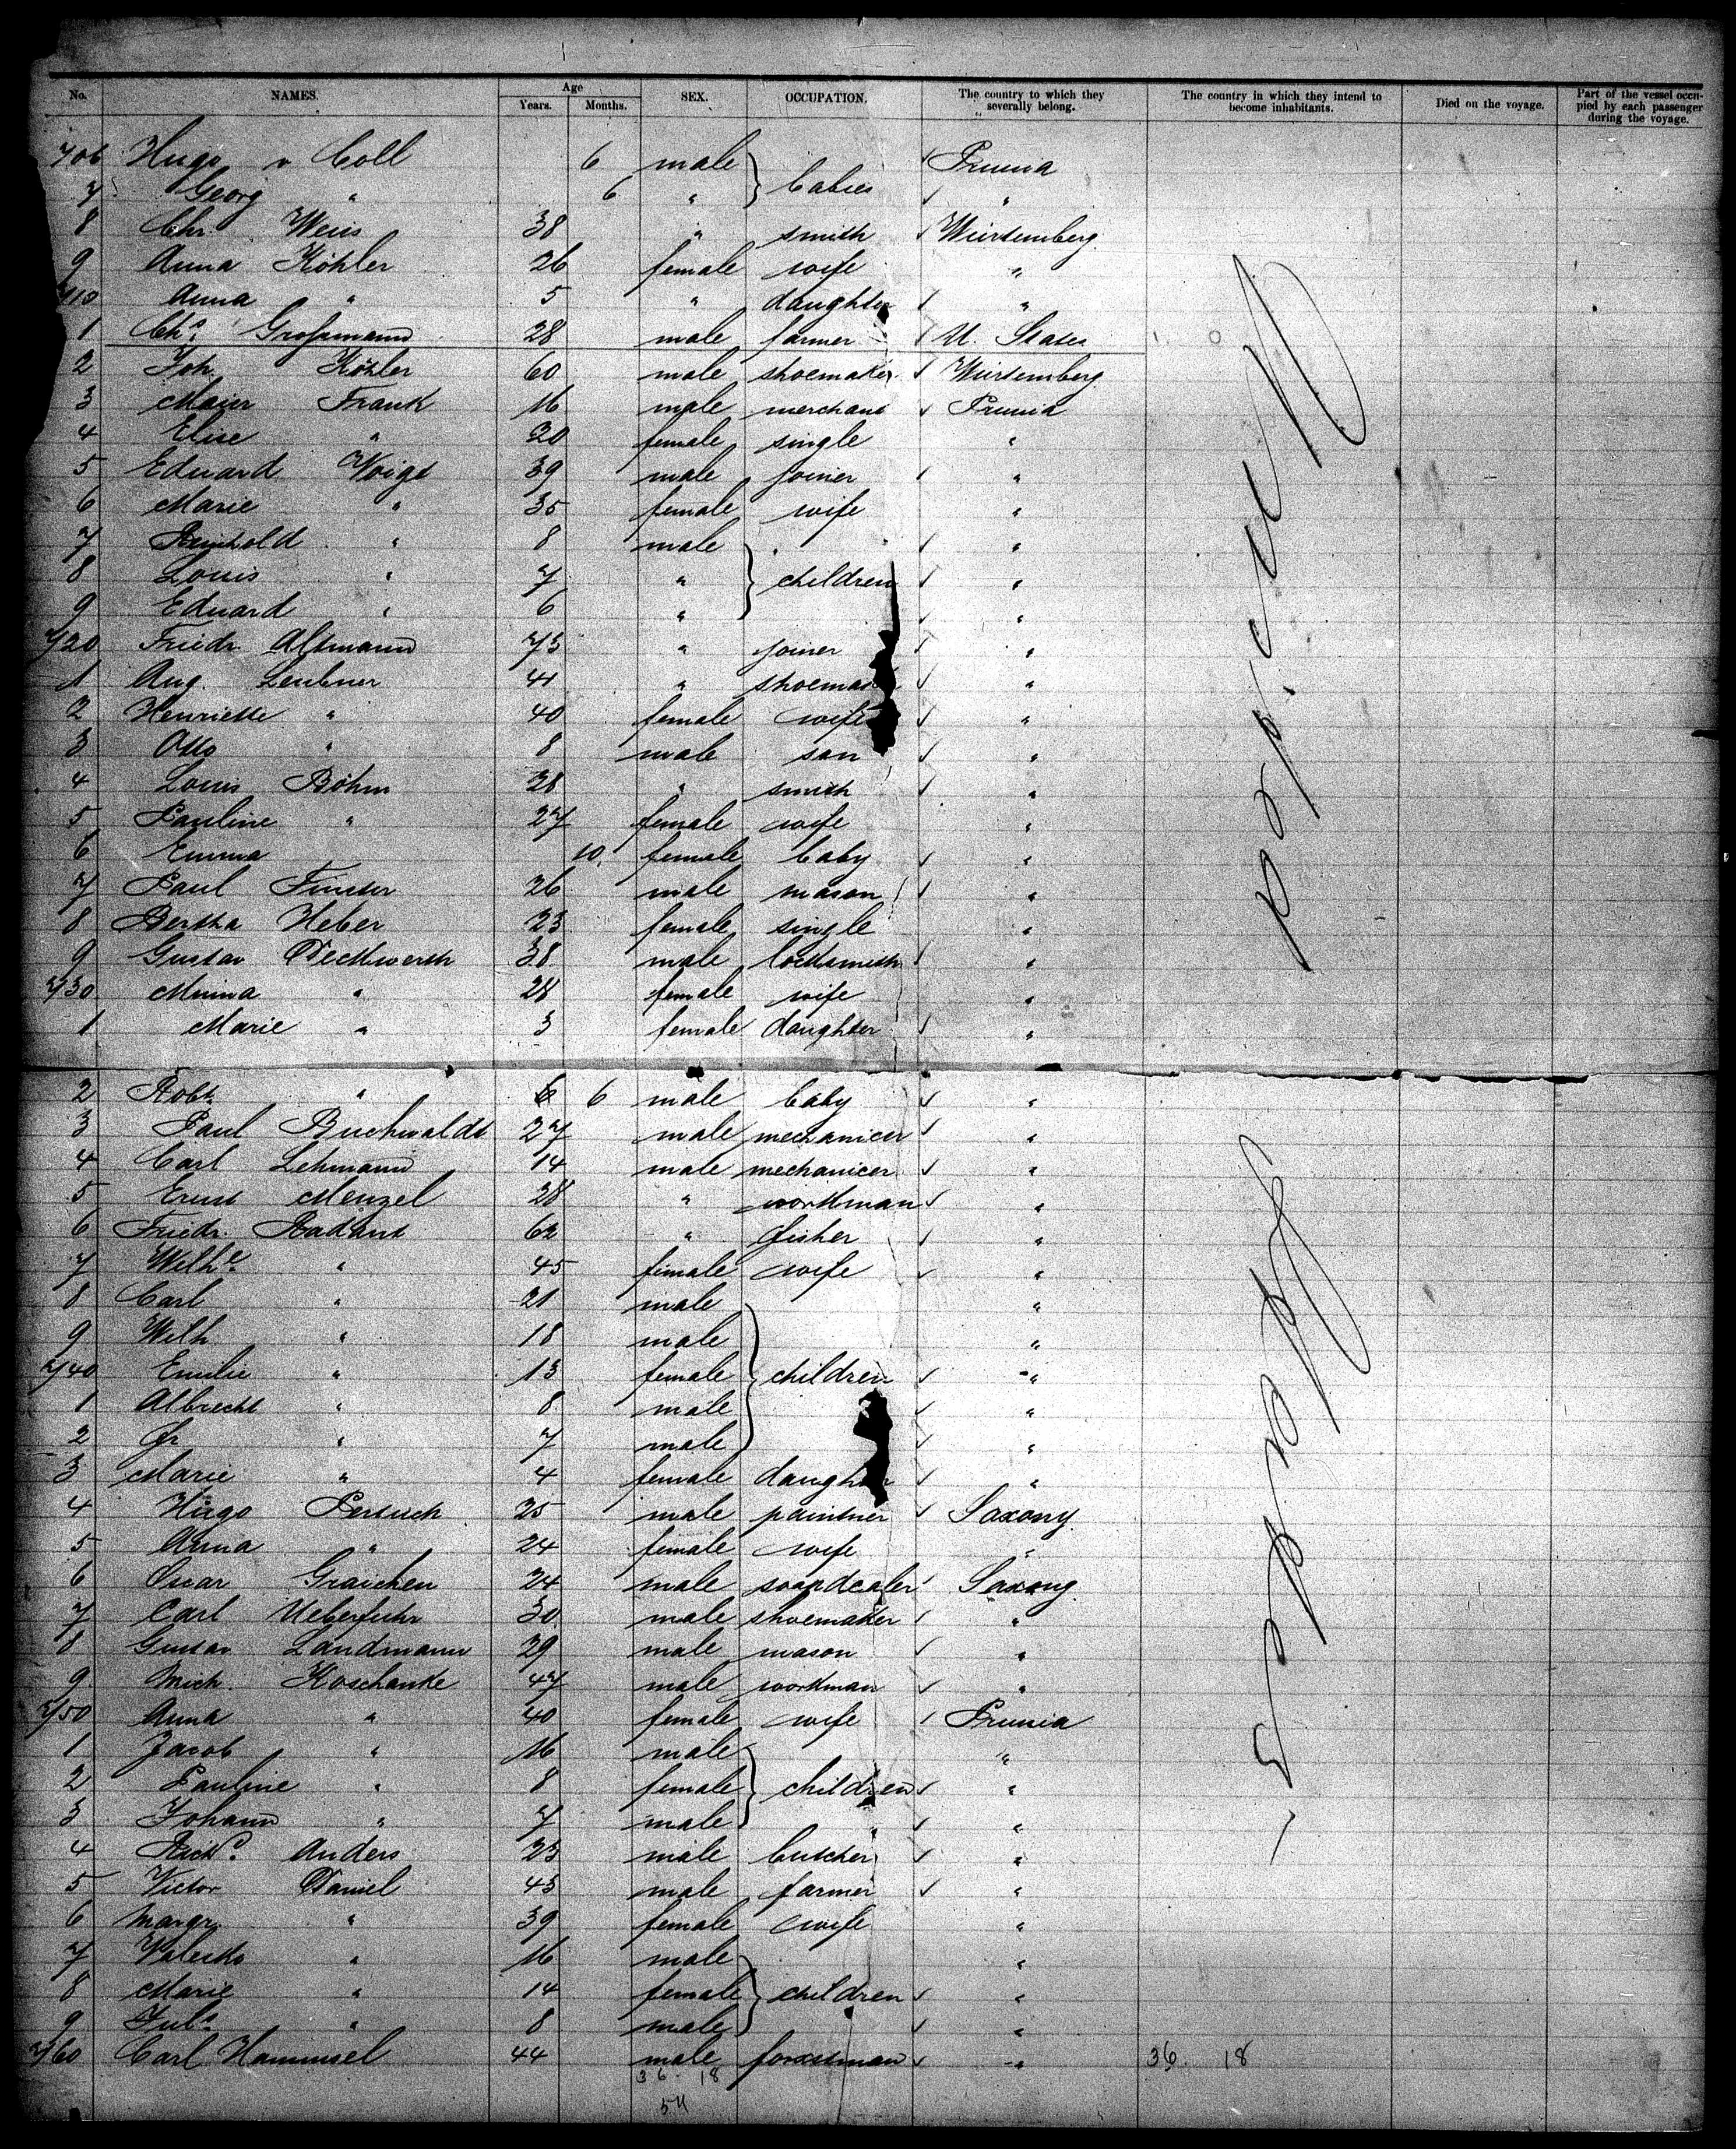 No. NAMES. Age Years. Months. SEX. OCCUPATION. The country to which they severally belong. The country in which they intend to become inhabitants. Died on the voyage. Part of the vessel occupied by each passenger during the voyage.
706 Hugo v Coll 6 male babies Prussia
7 Georg " 6 " "
8 Chr. Weiss 38 " smith Würtemberg
9 Anna Köhler 26 female wife "
710 Anna " 5 " daughter "
1 Chs. Grossmann 28 male farmer U. States
2 Joh. Köhler 60 male shoemaker Würtemberg
3 Maier Frank 16 male merchant Prussia
4 Elise " 20 female single "
5 Eduard Voigt 39 male joiner "
6 Marie " 35 female wife "
7 Reinhold " 8 male "
8 Louis " 7 " children "
9 Eduard " 6 " "
720 Friedr. Altmann 73 " joiner "
1 Aug. Leubner 41 " shoemaker "
2 Henriette " 40 female wife "
3 Otto " 8 male son "
4 Louis Böhm 28 " smith "
5 Pauline " 27 female wife "
6 Emma 10 female baby "
7 Paul Finster 26 male mason "
8 Bertha Heber 23 female single "
9 Gustav Deckwerth 38 male locksmith "
730 Minna " 28 female wife "
1 Marie " 3 female daughter "
2 Robt. " 6 6 male baby "
3 Paul Buchwaldt 27 male mechanicer "
4 Carl Lehmann 14 male mechanicer "
5 Ernst Menzel 28 " workman "
6 Friedr. Radant 62 " fisher "
7 Wilhe. " 45 female wife "
8 Carl " 21 male "
9 Wilh " 18 male "
740 Emilie " 13 female children "
1 Albrecht " 8 male "
2 Fr " 7 male "
3 Marie " 4 female daughter "
4 Hugo Pertuch 25 male paintner Saxony
5 Anna " 24 female wife "
6 Oscar Graichen 24 male soapdealer Saxony
7 Carl Ueberfuhr 30 male shoemaker "
8 Gustav Landmann 29 male mason "
9 Mich. Koschanke 47 male workman "
750 Anna " 40 female wife Prussia
1 Jacob " 16 male "
2 Pauline " 8 female children "
3 Johann " 7 male "
4 Richd. Anders 23 male butcher "
5 Victor Daniel 43 male farmer "
6 Margr. " 39 female wife "
7 " 16 male "
8 Marie " 14 female children "
9 Juls. " 8 male "
760 Carl Hammsel 44 male forestman " 36. 18
36. 18
54